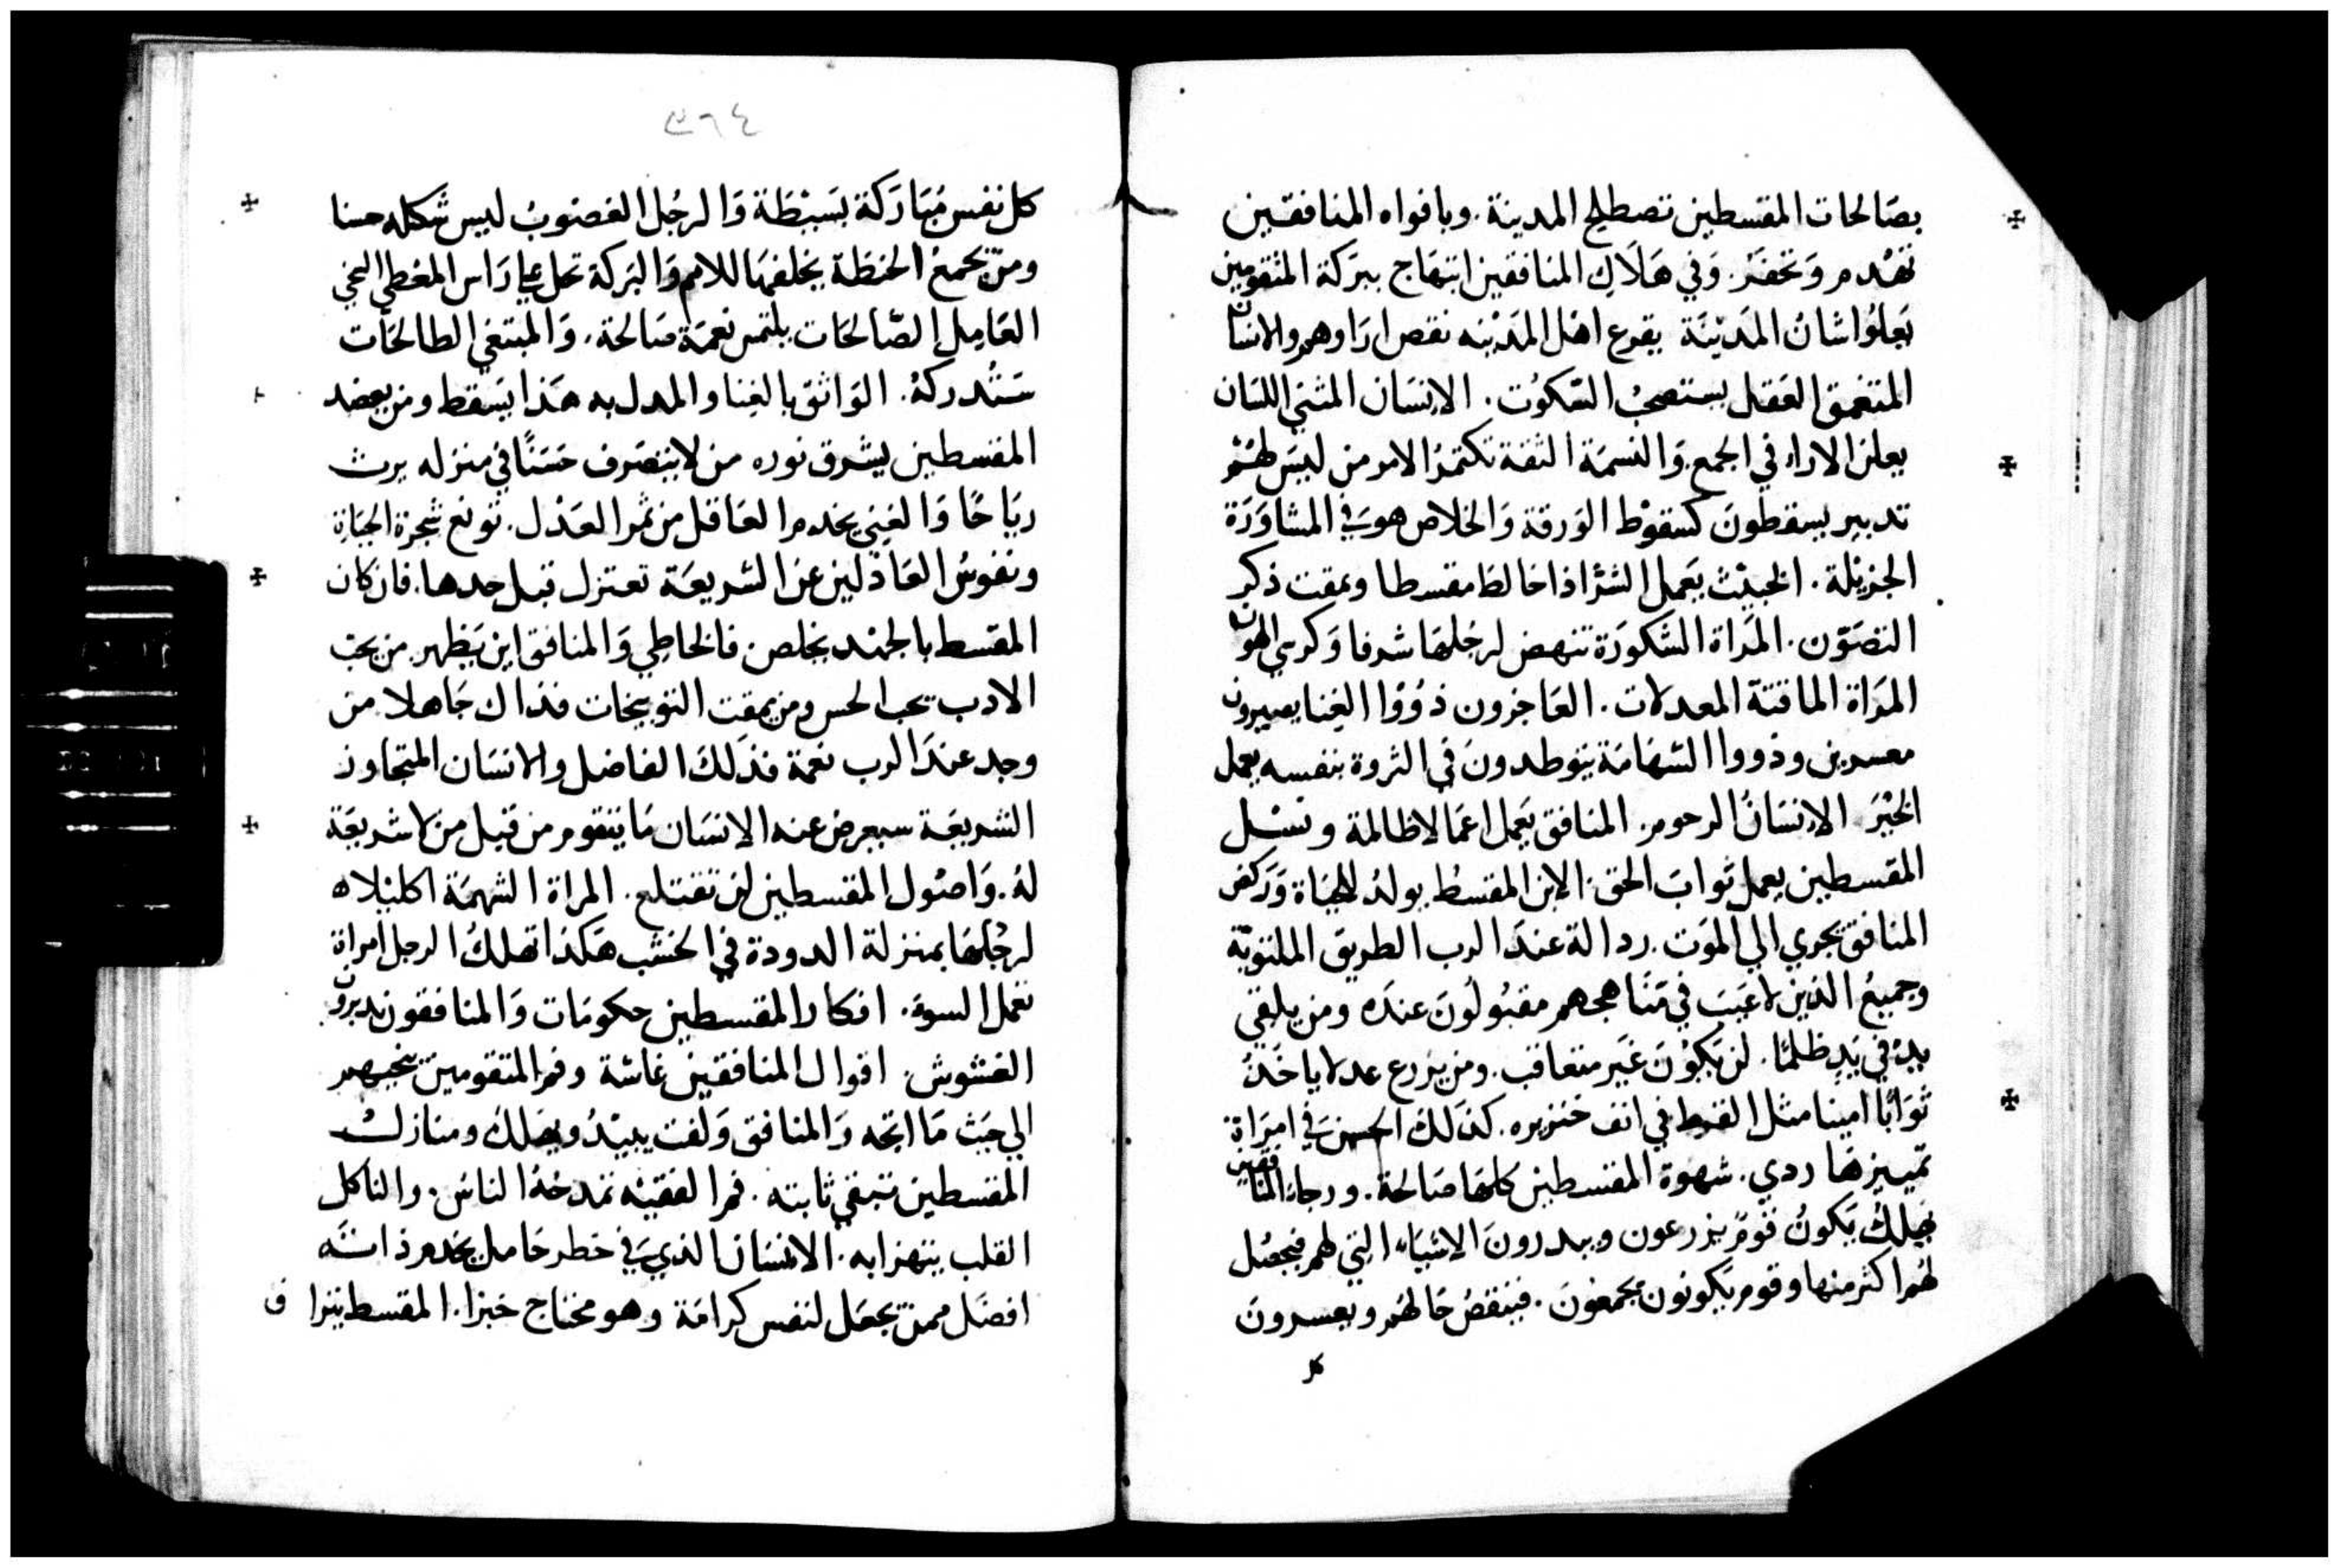 بصَالحات المقسطين تصطلح المدينة. وبافواه المنافقين
تهدم وَتحفَر. وَفي هَلَاك المنافقين ابتهَاج ببرَكة المتقومين
يَعلوا شان المَديْنَة يقرع اهل المَديْنه نقص اراوهم والانسان
المتغمق العَقل يستصحبُ السّكوُت. الانسَان المثني اللسَان
يعلن الارا في الجمع وَالنسمَة الثقة تكتم الامر من ليسَ لهُمْ
تدبير يسقطونَ كسقوْط الوَرقة وَالخلاص هوَ في المشاوَرَة
الجزيْلة. الخبيْث يَعمل الشرّ اذا خالط مقسطا ويمقت ذكر
التصَوّن. المَراة الشكورَة تنهض لرجُلهَا شرفا وَكرسي الهوان
المرَاة الماقتة المعدلات. العَاجزون ذوُوْا الغِنا يصيرون
معسرين وذووا الشهَامَة يتوطدونَ في الثروة بنفسه يعمل
الخيْرَ الانسَانُ الرحوم. المنافق يَعمل اعمَالا ظالمة ونسْل
المقسطين يعمل ثوابَ الحق. الابن المقسط يولدُ للحيَاة وَركض
المنافق يجري الي الموَت. ردالة عندَ الرب الطريق الملتويّة
وجميعُ الذين لا عَيبَ في مَنَاهجهم مقبُولوُنَ عندَه ومن يلقي
يدْ في يَدٍ ظلمًا. لن يَكوْن غَير متعاقب. ومن يزرع عدلا ياخَذ
ثوَابًا امينا مثل القرط في انف خنزيره. كذَلكَ الحسن في امرَاة
تمييزهَا ردي. شهوة المقسطين كلهَا صَالحة. ورجاء المنافقين
يَهلكُ يَكونُ قومٌ يزرعون ويبدرونَ الاشيَاء التي لهم فيحصُل
لهُم اكثر منها وقوم يَكونون يجمعونَ. فينقصُ حَالهُم ويعسرونَ
كل
٣٦٤
كل نفس مُبَارَكة بَسيْطَة وَالرجُل الغضوبُ ليس شكله حسنا
ومن يجمعُ الحنطَة يخلفهَا للامم وَالبَركة تحل علي رَاس المعطي السخي
العَامِل الصّالحَات يلتمس نعمَة صَالحة. وَالمبتغي الطالحَات
سَتُدركهُ. الوَاثق بالغِنا والمدل به هَذا يَسقط ومن يعضد
المقسطين يشرق نوره من لا يتصَرف حَسَنًا في منزله يرث
ريَاحًا وَالغبي يخدم العَاقل من ثمر العَدْل. تونع شجرة الحيَاة
ونفوسُ العَاذلين عن الشريعَة تعتزل قبل حدها. فان كان
المقسط بالجهد يخلص. فالخاطِي وَالمنافق اين يَظهر. من يحب
الادب يحب الحس ومن يمقت التوبيخات فذاك جَاهلا من
وجد عندَ الرب نعمة فذَلكَ الفاضل والانسَان المتجاوز
الشريعَة سيعرض عنه الانسَان مَا يتقوم من قبل من لا شريعَة
لهُ. وَاصوُل المقسطين لن تقتلع. المراة الشهمَة اكليلاه
لرجُلهَا بمنزلة الدودة في الخشب هَكذا تهلكُ الرجل امراة
تعمل السوء. افكار المقسطين حكومَات وَالمنافقون يدبرون
الغشوش. اقوال المنافقين غاشة وفم المتقومين ينجيهم
الي حَيث مَا اتجه وَالمنافق وَلفت يبيْدُ ويهَلك ومنازل
المقسطين تبقي ثابته. فم الفقيْه تمدحُهُ الناسُ. والناكل
القلب يتهزا به. الانسَان الذي في خطر خامل يخدم ذاته
افضَل ممن يجعَل لنفس كرامَة وهو محتاج خبزا. المقسط يترا ف